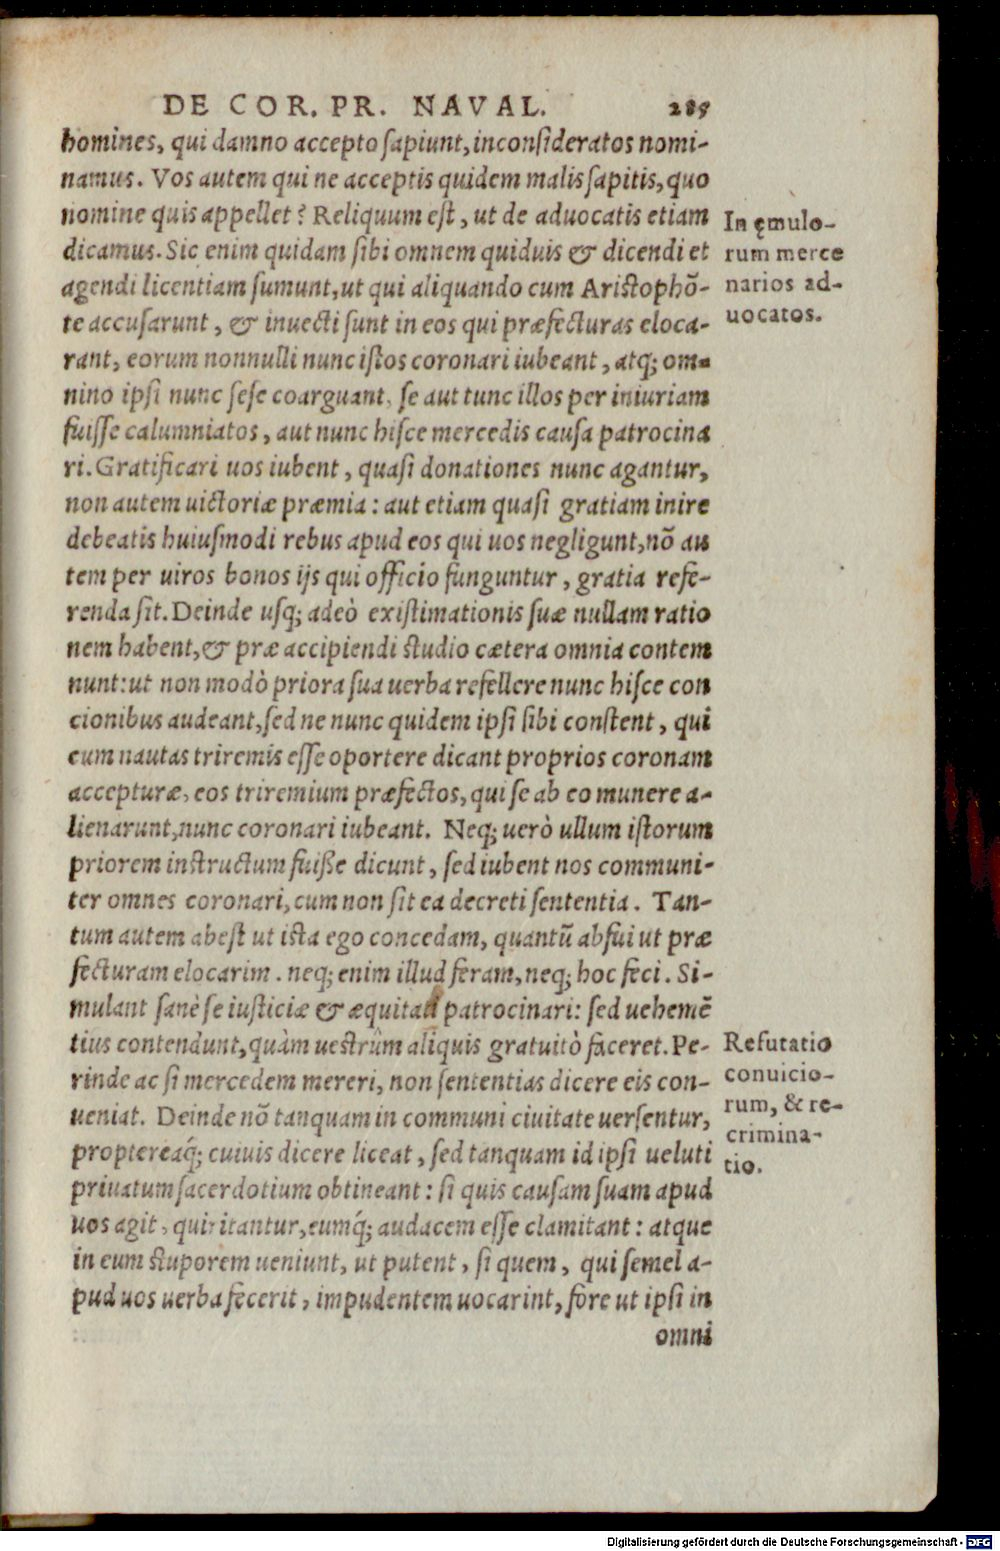 DE COR. PR. NAVAL. 285
homines, qui damno accepto sapiunt, inconsideratos nomi-
namus. Vos autem qui ne acceptis quidem malis sapitis, quo
nomine quis appellet? Reliquum est, ut de aduocatis etiam
dicamus. Sic enim quidam sibi omnem quiduis & dicendi et
agendi licentiam sumunt, ut qui aliquando cum Aristophõ-
te accusarunt, & inuecti sunt in eos qui præfecturas eloca-
rant, eorum nonnulli nunc istos coronari iubeant, atq; om-
nino ipsi nunc sese coarguant, se aut tunc illos per iniuriam
fuisse calumniatos, aut nunc hisce mercedis causa patrocina
ri. Gratificari uos iubent, quasi donationes nunc agantur,
non autem uictoriæ præmia: aut etiam quasi gratiam inire
debeatis huiusmodi rebus apud eos qui uos negligunt, nõ au
tem per uiros bonos ijs qui officio funguntur, gratia refe-
renda sit. Deinde usq; adeò existimationis suæ nullam ratio
nem habent, & præ accipiendi studio cætera omnia contem
nunt: ut non modò priora sua uerba refellere nunc hisce con
cionibus audeant, sed ne nunc quidem ipsi sibi constent, qui
cum nautas triremis esse oportere dicant proprios coronam
accepturæ, eos triremium præfectos, qui se ab eo munere a-
lienarunt, nunc coronari iubeant. Neq; uerò ullum istorum
priorem instructum fuisse dicunt, sed iubent nos communi-
ter omnes coronari, cum non sit ea decreti sententia. Tan-
tum autem abest ut ista ego concedam, quantũ abfui ut præ
fecturam elocarim. neq; enim illud feram, neq; hoc feci. Si-
mulant sanè se iusticiæ & æquitati patrocinari: sed uehemẽ
tius contendunt, quàm uestrûm aliquis gratuitò faceret. Pe-
rinde ac si mercedem mereri, non sententias dicere eis con-
ueniat. Deinde nõ tanquam in communi ciuitate uersentur,
proptereaq́; cuiuis dicere liceat, sed tanquam id ipsi ueluti
priuatum sacerdotium obtineant: si quis causam suam apud
uos agit, quiritantur, eumq́; audacem esse clamitant: atque
in eum stuporem ueniunt, ut putent, si quem, qui semel a-
pud uos uerba fecerit, impudentem uocarint, fore ut ipsi in
omni
In ęmulo-
rum merce
narios ad-
uocatos.
Refutatio
conuicio-
rum, & re-
crimina-
tio.
Digitalisierung gefördert durch die Deutsche Forschungsgemeinschaft - DFG